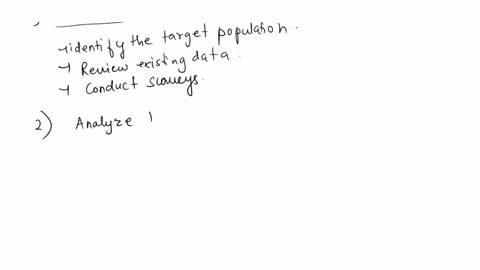 →identify the target population.
→ Review existing data.
→ Conduct surveys.
2) Analyze